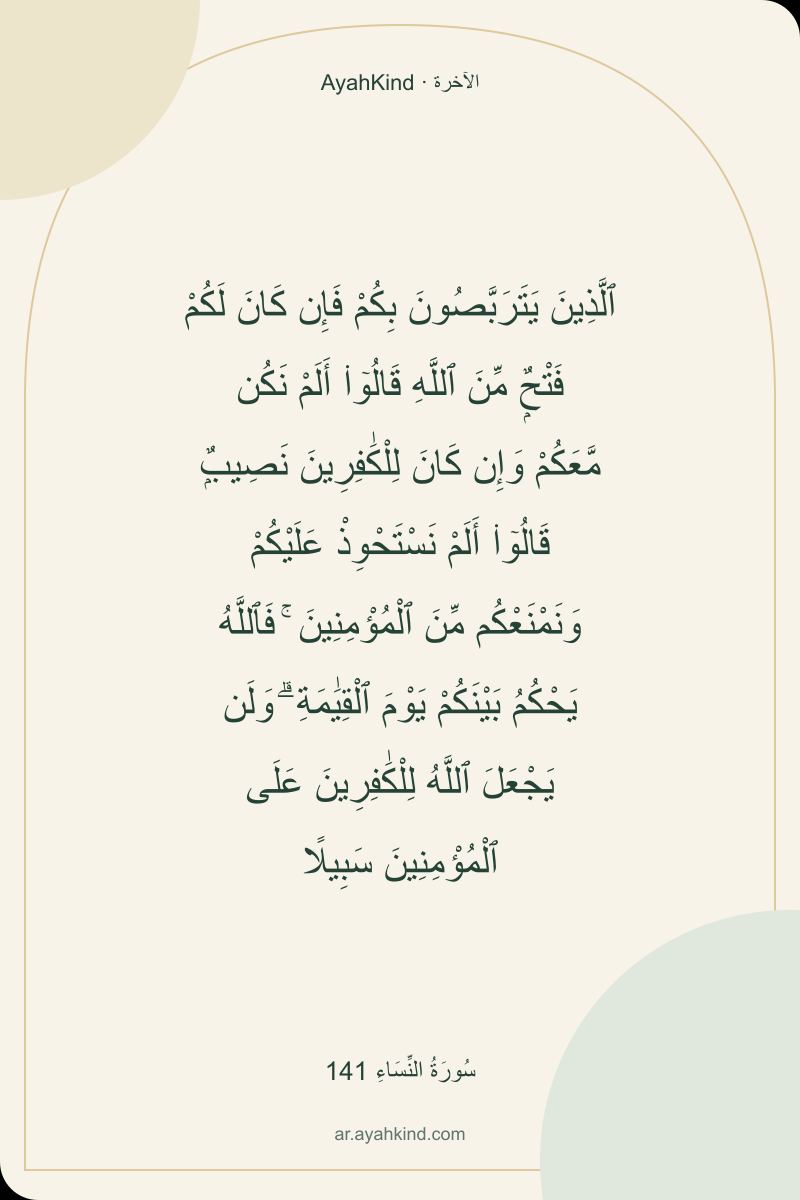 AyahKind · الآخرة
ٱلَّذِينَ يَتَرَبَّصُونَ بِكُمْ فَإِن كَانَ لَكُمْ
فَتْحٌۭ مِّنَ ٱللَّهِ قَالُوٓا۟ أَلَمْ نَكُن
مَّعَكُمْ وَإِن كَانَ لِلْكَـٰفِرِينَ نَصِيبٌۭ
قَالُوٓا۟ أَلَمْ نَسْتَحْوِذْ عَلَيْكُمْ
وَنَمْنَعْكُم مِّنَ ٱلْمُؤْمِنِينَ ۚ فَٱللَّهُ
يَحْكُمُ بَيْنَكُمْ يَوْمَ ٱلْقِيَـٰمَةِ ۗ وَلَن
يَجْعَلَ ٱللَّهُ لِلْكَـٰفِرِينَ عَلَى
ٱلْمُؤْمِنِينَ سَبِيلًا
سُورَةُ النِّسَاءِ 141
ar.ayahkind.com